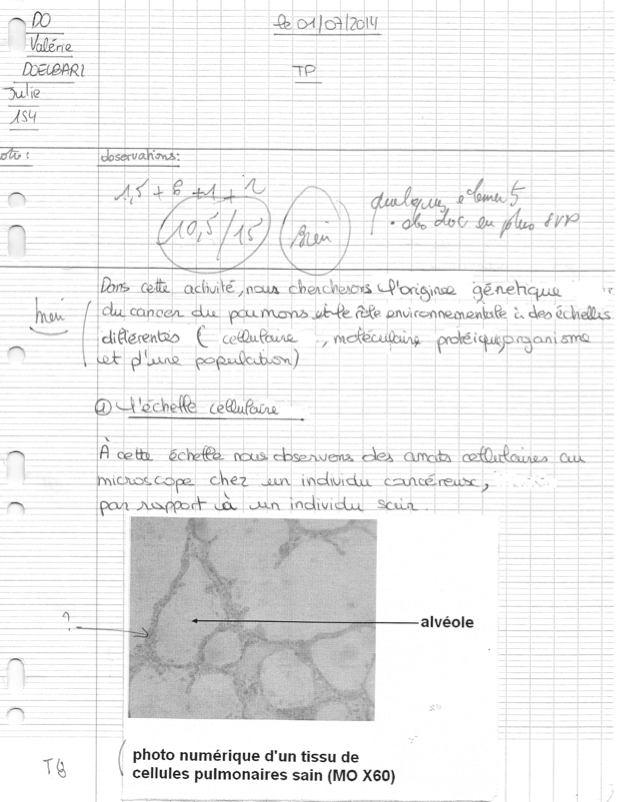 DO
Valérie
DOELBARI
Julie
1S4
le 01/07/2014
TP
observations:
1,5 + 6 + 1 + 2
10,5/15
bien
quelques
doc en plus SVP
Dans cette activité, nous chercherons l'origine génétique
du cancer du poumons et le rôle environnementale à des échelles
différentes ( cellulaire , moléculaire protéique, organisme
et d'une population)
bien
a) L'échelle cellulaire
À cette échelle nous observons des amats cellulaires au
microscope chez un individu cancéreux,
par rapport à un individu sain.
?
alvéole
photo numérique d'un tissu de
cellules pulmonaires sain (MO X60)
TB